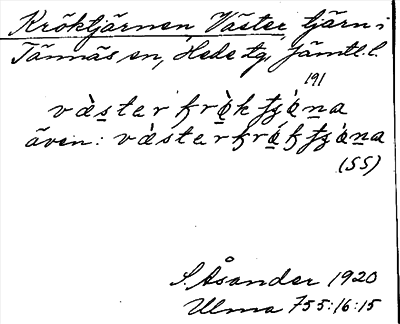 Kröktjärnen, Väster, tjärn i
Tännäs sn, Hede tg, Jämtl. l.
191
vàster krö̀k tjä́na
även: vàsterkrö́ktjä̀na
(SS)
S. Åsander 1920
Ulma 755:16:15